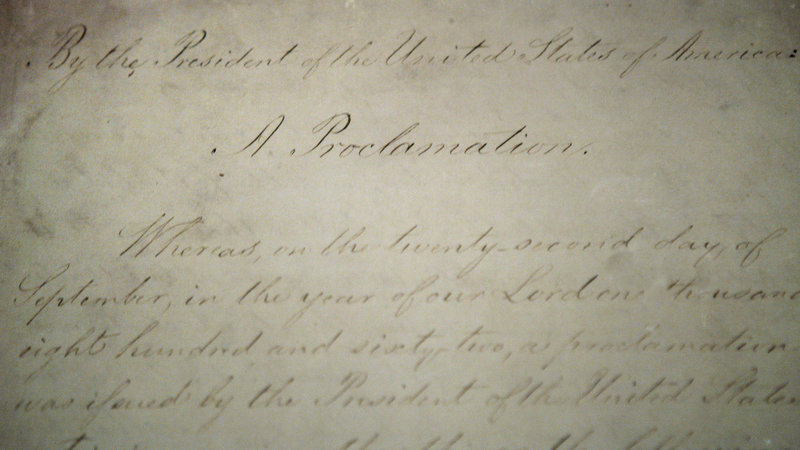 By the President of the United States of America:
A Proclamation.
Whereas, on the twenty-second day of
September, in the year of our Lord one thousand
eight hundred and sixty-two, a proclamation
was issued by the President of the United States